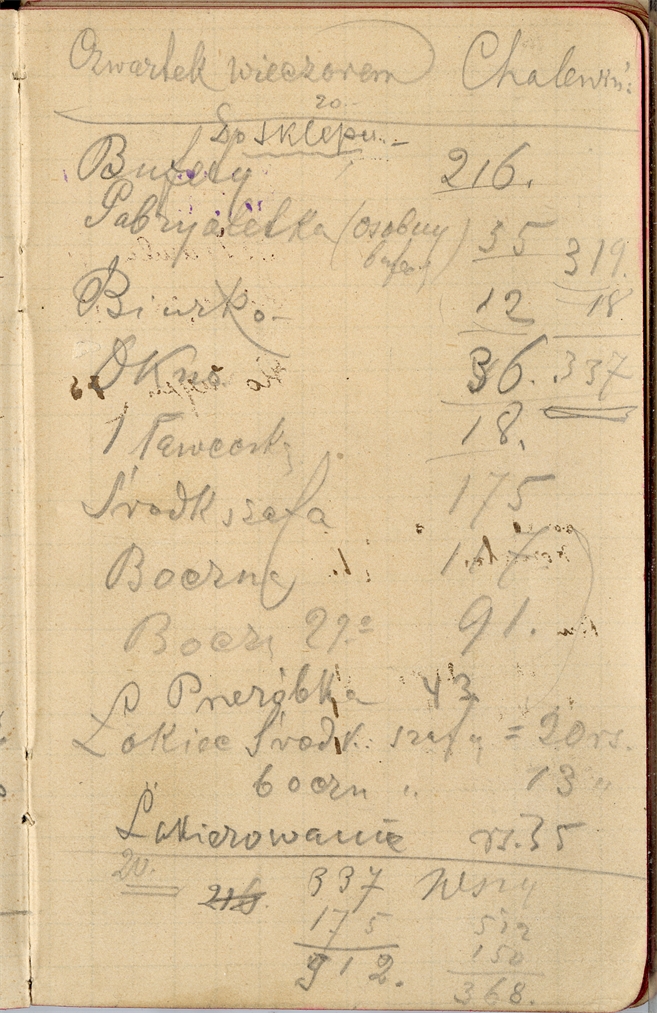 Czwartek wieczorem Chalewiń:
20.
Do sklepu
Bufety 216.
Gabryaletka (osobny bufet) 35 319.
Biurko 12 18
Okno 36. 337
1 Ławeczk 18.
Środk szafa 175
Boczna
Boczn 2ga 91.
Przeróbka 43
Łokieć Środk. szafy = 20 rs.
boczn " 13 "
Lakierowanie rs. 35
20. 216 337
175 512
912. 150
368.